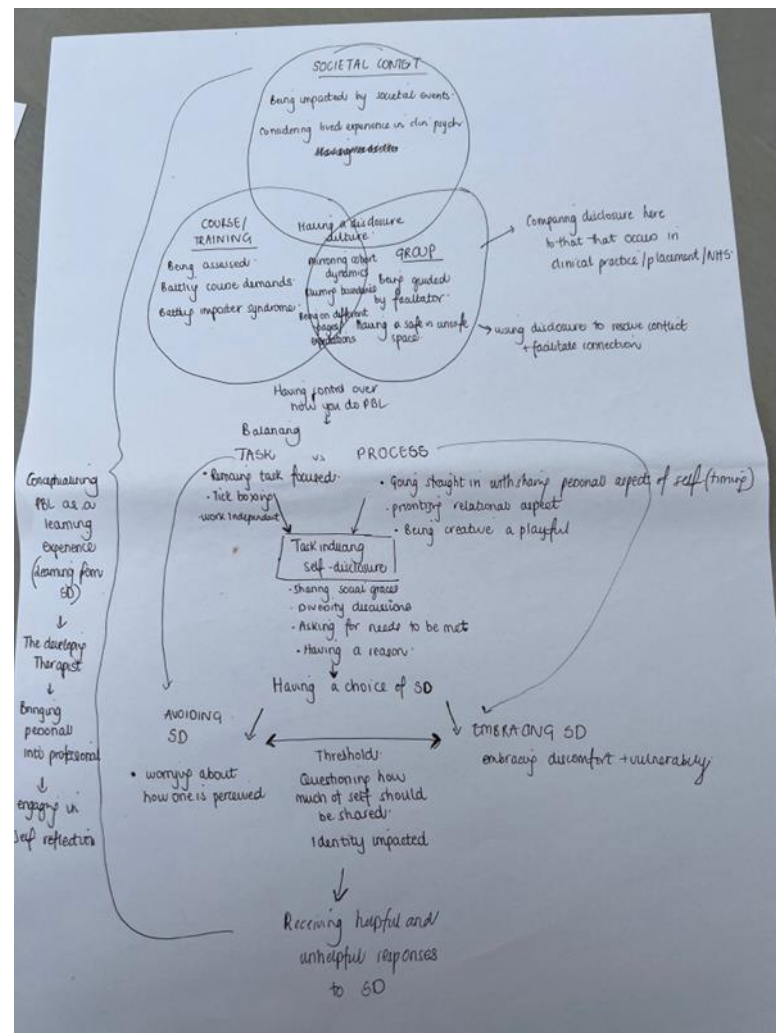 SOCIETAL CONTEXT
Being impacted by societal events.
Considering lived experience in clin psych
COURSE/
TRAINING
Being assessed.
Battling course demands.
Battling imposter syndrome.
Having a disclosure
culture.
mirroring cohort
dynamics
Blurring boundaries
Being on different
pages/
expectations
GROUP
being guided
by facilitator.
Having a safe n unsafe
space.
Comparing disclosure here
to that that occurs in
clinical practice/placement/NHS.
using disclosure to resolve conflict
+ facilitate connection
Having control over
how you do PBL
Balancing
TASK vs PROCESS
• Remaining task focused.
• Tick boxing
• work independent
• Going straight in with sharing personal aspects of self (timing)
• prioritising relational aspect
• Being creative a playful
Task inducing
self-disclosure
• Sharing social graces
• Diversity discussions
• Asking for needs to be met
• Having a reason.
Having a choice of SD
AVOIDING
SD
• worrying about
how one is perceived
Threshold.
Questioning how
much of self should
be shared.
Identity impacted
EMBRACING SD
embracing discomfort + vulnerability
Receiving helpful and
unhelpful responses
to SD
Conceptualising
PBL as a
learning
experience
(learning from
SD)
The developing
Therapist
Bringing
personal
into professional
engaging in
self reflection